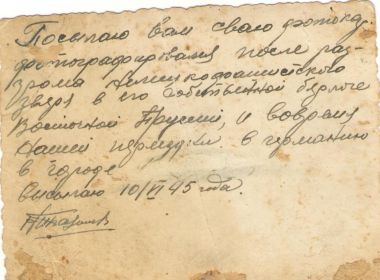 Посылаю вам сваю фотока.
фотографировался после раз-
грома немецкофашистского
зверя в его собственной берлоге
Восточной Пруссии, и вовремя
нашей переездки в германию
в городе
высылаю 10/VI 45 года.